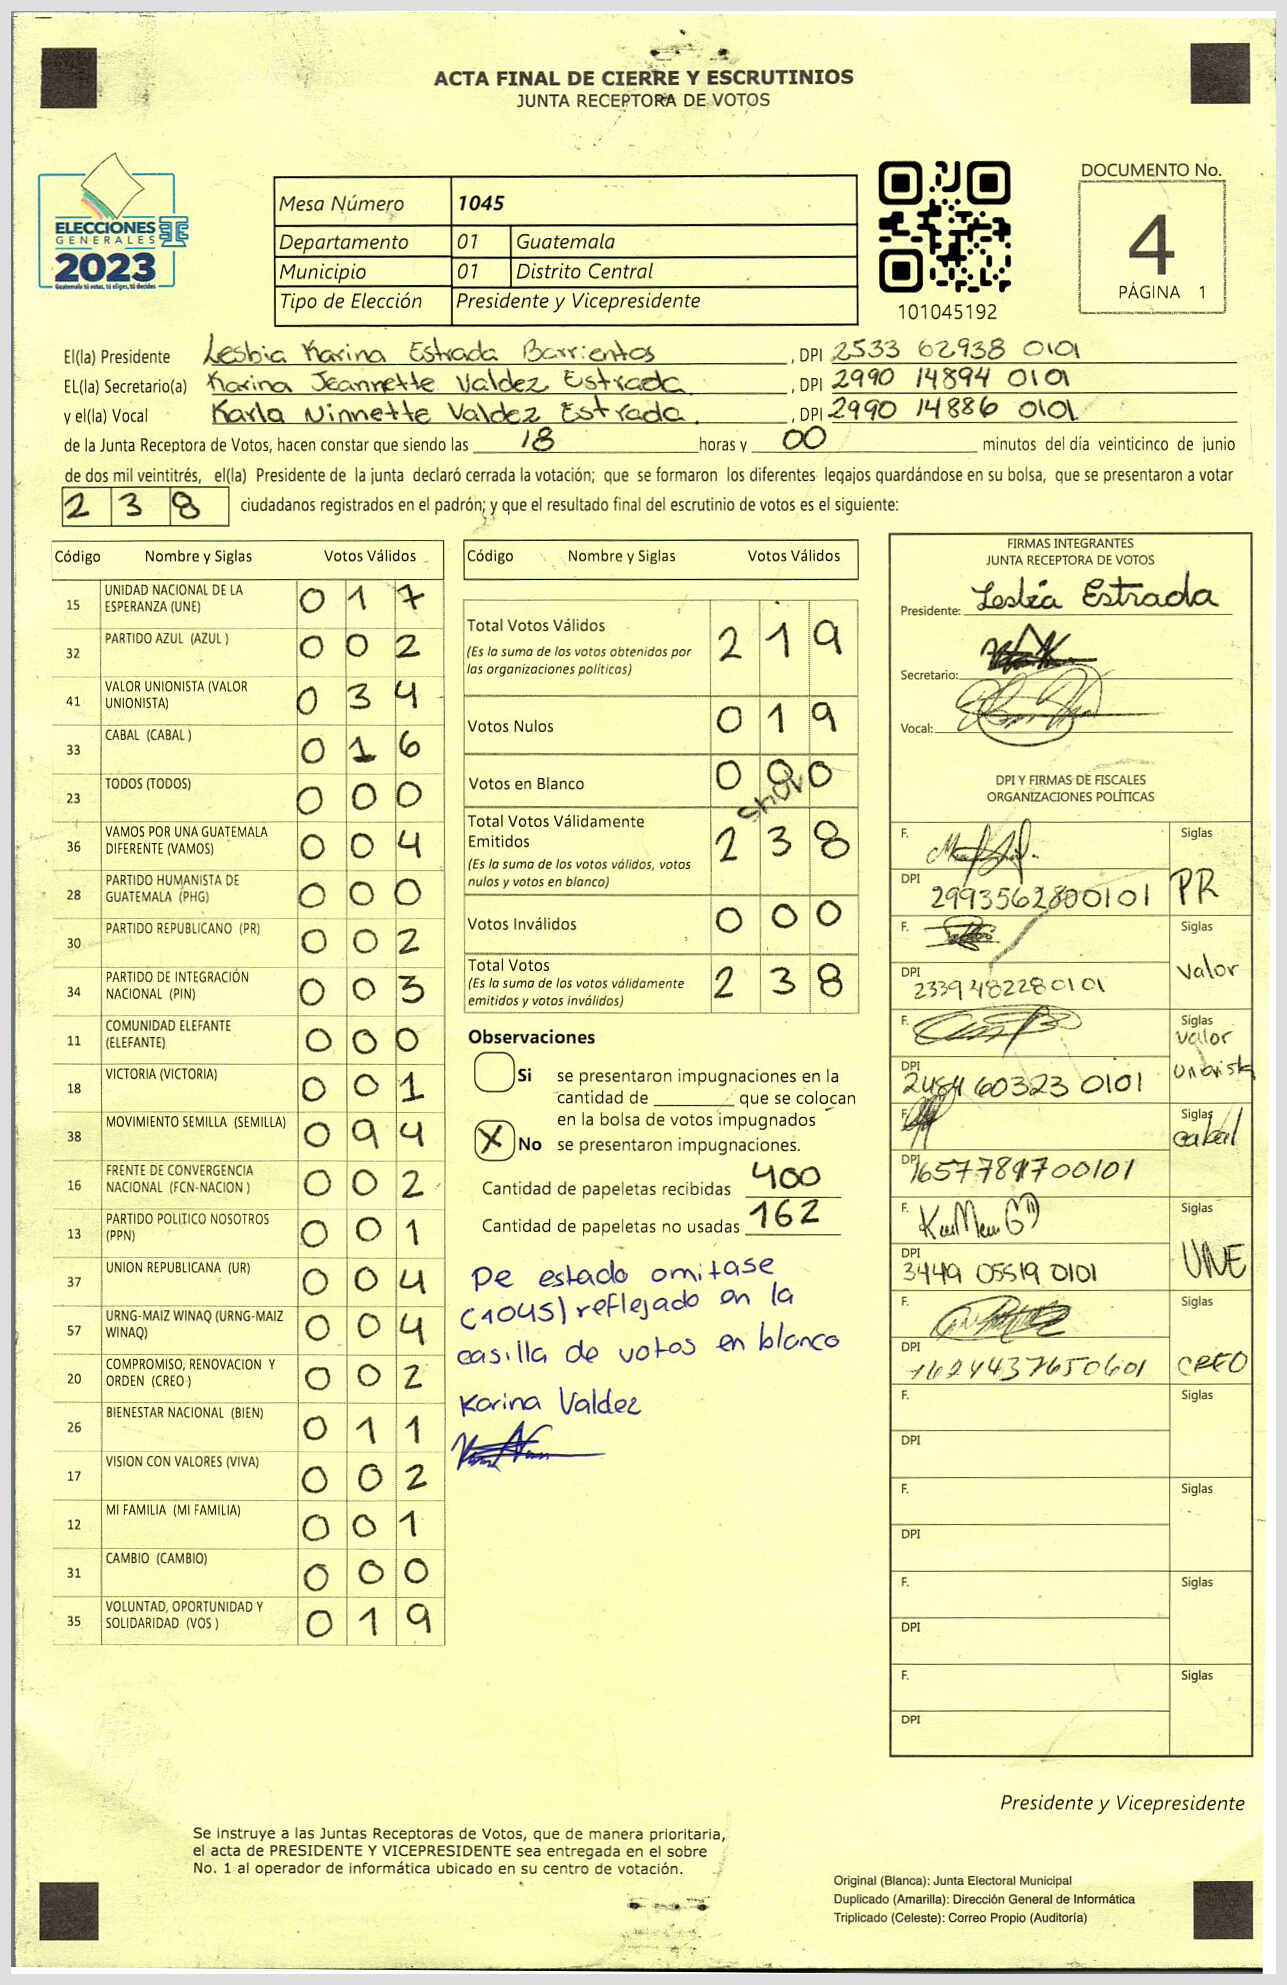 ACTA FINAL DE CIERRE Y ESCRUTINIOS
JUNTA RECEPTORA DE VOTOS
ELECCIONES
GENERALES
2023
Guatemala tú votas, tú eliges, tú decides
Mesa Número 1045
Departamento 01 Guatemala
Municipio 01 Distrito Central
Tipo de Elección Presidente y Vicepresidente
101045192
DOCUMENTO No.
4
PÁGINA 1
El(la) Presidente Lesbia Karina Estrada Barrientos, DPI 2533 62938 0101
EL(la) Secretario(a) Karina Jeannette Valdez Estrada, DPI 2990 14894 0101
y el(la) Vocal Karla Ninnette Valdez Estrada, DPI 2990 14886 0101
de la Junta Receptora de Votos, hacen constar que siendo las 18 horas y 00 minutos del día veinticinco de junio
de dos mil veintitrés, el(la) Presidente de la junta declaró cerrada la votación; que se formaron los diferentes legajos guardándose en su bolsa, que se presentaron a votar
238 ciudadanos registrados en el padrón; y que el resultado final del escrutinio de votos es el siguiente:
Código Nombre y Siglas Votos Válidos
15 UNIDAD NACIONAL DE LA
ESPERANZA (UNE) 017
32 PARTIDO AZUL (AZUL ) 002
41 VALOR UNIONISTA (VALOR
UNIONISTA) 034
33 CABAL (CABAL ) 016
23 TODOS (TODOS) 000
36 VAMOS POR UNA GUATEMALA
DIFERENTE (VAMOS) 004
28 PARTIDO HUMANISTA DE
GUATEMALA (PHG) 000
30 PARTIDO REPUBLICANO (PR) 002
34 PARTIDO DE INTEGRACIÓN
NACIONAL (PIN) 003
11 COMUNIDAD ELEFANTE
(ELEFANTE) 000
18 VICTORIA (VICTORIA) 001
38 MOVIMIENTO SEMILLA (SEMILLA) 094
16 FRENTE DE CONVERGENCIA
NACIONAL (FCN-NACION ) 002
13 PARTIDO POLITICO NOSOTROS
(PPN) 001
37 UNION REPUBLICANA (UR) 004
57 URNG-MAIZ WINAQ (URNG-MAIZ
WINAQ) 004
20 COMPROMISO, RENOVACION Y
ORDEN (CREO ) 002
26 BIENESTAR NACIONAL (BIEN) 011
17 VISION CON VALORES (VIVA) 002
12 MI FAMILIA (MI FAMILIA) 001
31 CAMBIO (CAMBIO) 000
35 VOLUNTAD, OPORTUNIDAD Y
SOLIDARIDAD (VOS ) 019
Código Nombre y Siglas Votos Válidos
Total Votos Válidos 219
(Es la suma de los votos obtenidos por
las organizaciones políticas)
Votos Nulos 019
Votos en Blanco 000
Total Votos Válidamente
Emitidos 238
(Es la suma de los votos válidos, votos
nulos y votos en blanco)
Votos Inválidos 000
Total Votos 238
(Es la suma de los votos válidamente
emitidos y votos inválidos)
Observaciones
Si se presentaron impugnaciones en la
cantidad de ________ que se colocan
en la bolsa de votos impugnados
X No se presentaron impugnaciones.
Cantidad de papeletas recibidas 400
Cantidad de papeletas no usadas 162
De estado omitase
(1045) reflejado en la
casilla de votos en blanco
Karina Valdez
FIRMAS INTEGRANTES
JUNTA RECEPTORA DE VOTOS
Presidente: Lesbia Estrada
Secretario:
Vocal:
DPI Y FIRMAS DE FISCALES
ORGANIZACIONES POLÍTICAS
F. Siglas
DPI 2993562800101 PR
F. Siglas
DPI 2339482280101 Valor
F. Siglas
valor
DPI 2484 60323 0101 unionista
F. Siglas
cabal
DPI 1657789700101
F. Siglas
DPI 3449 05519 0101 UNE
F. Siglas
DPI 1624437650601 CREO
F. Siglas
DPI
F. Siglas
DPI
F. Siglas
DPI
F. Siglas
DPI
Presidente y Vicepresidente
Se instruye a las Juntas Receptoras de Votos, que de manera prioritaria,
el acta de PRESIDENTE Y VICEPRESIDENTE sea entregada en el sobre
No. 1 al operador de informática ubicado en su centro de votación.
Original (Blanca): Junta Electoral Municipal
Duplicado (Amarilla): Dirección General de Informática
Triplicado (Celeste): Correo Propio (Auditoría)